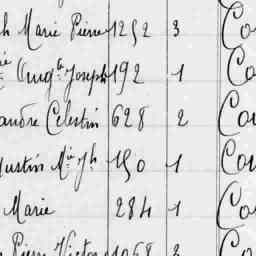 h Marie Pierre 1252 3 Co
Aug.te Joseph 192 1 Co
andre Celestin 628 2 Cou
ustin M.ie Jh 150 1 Cou
Marie 284 1 Co
Pierre Victor 1068 3 Co